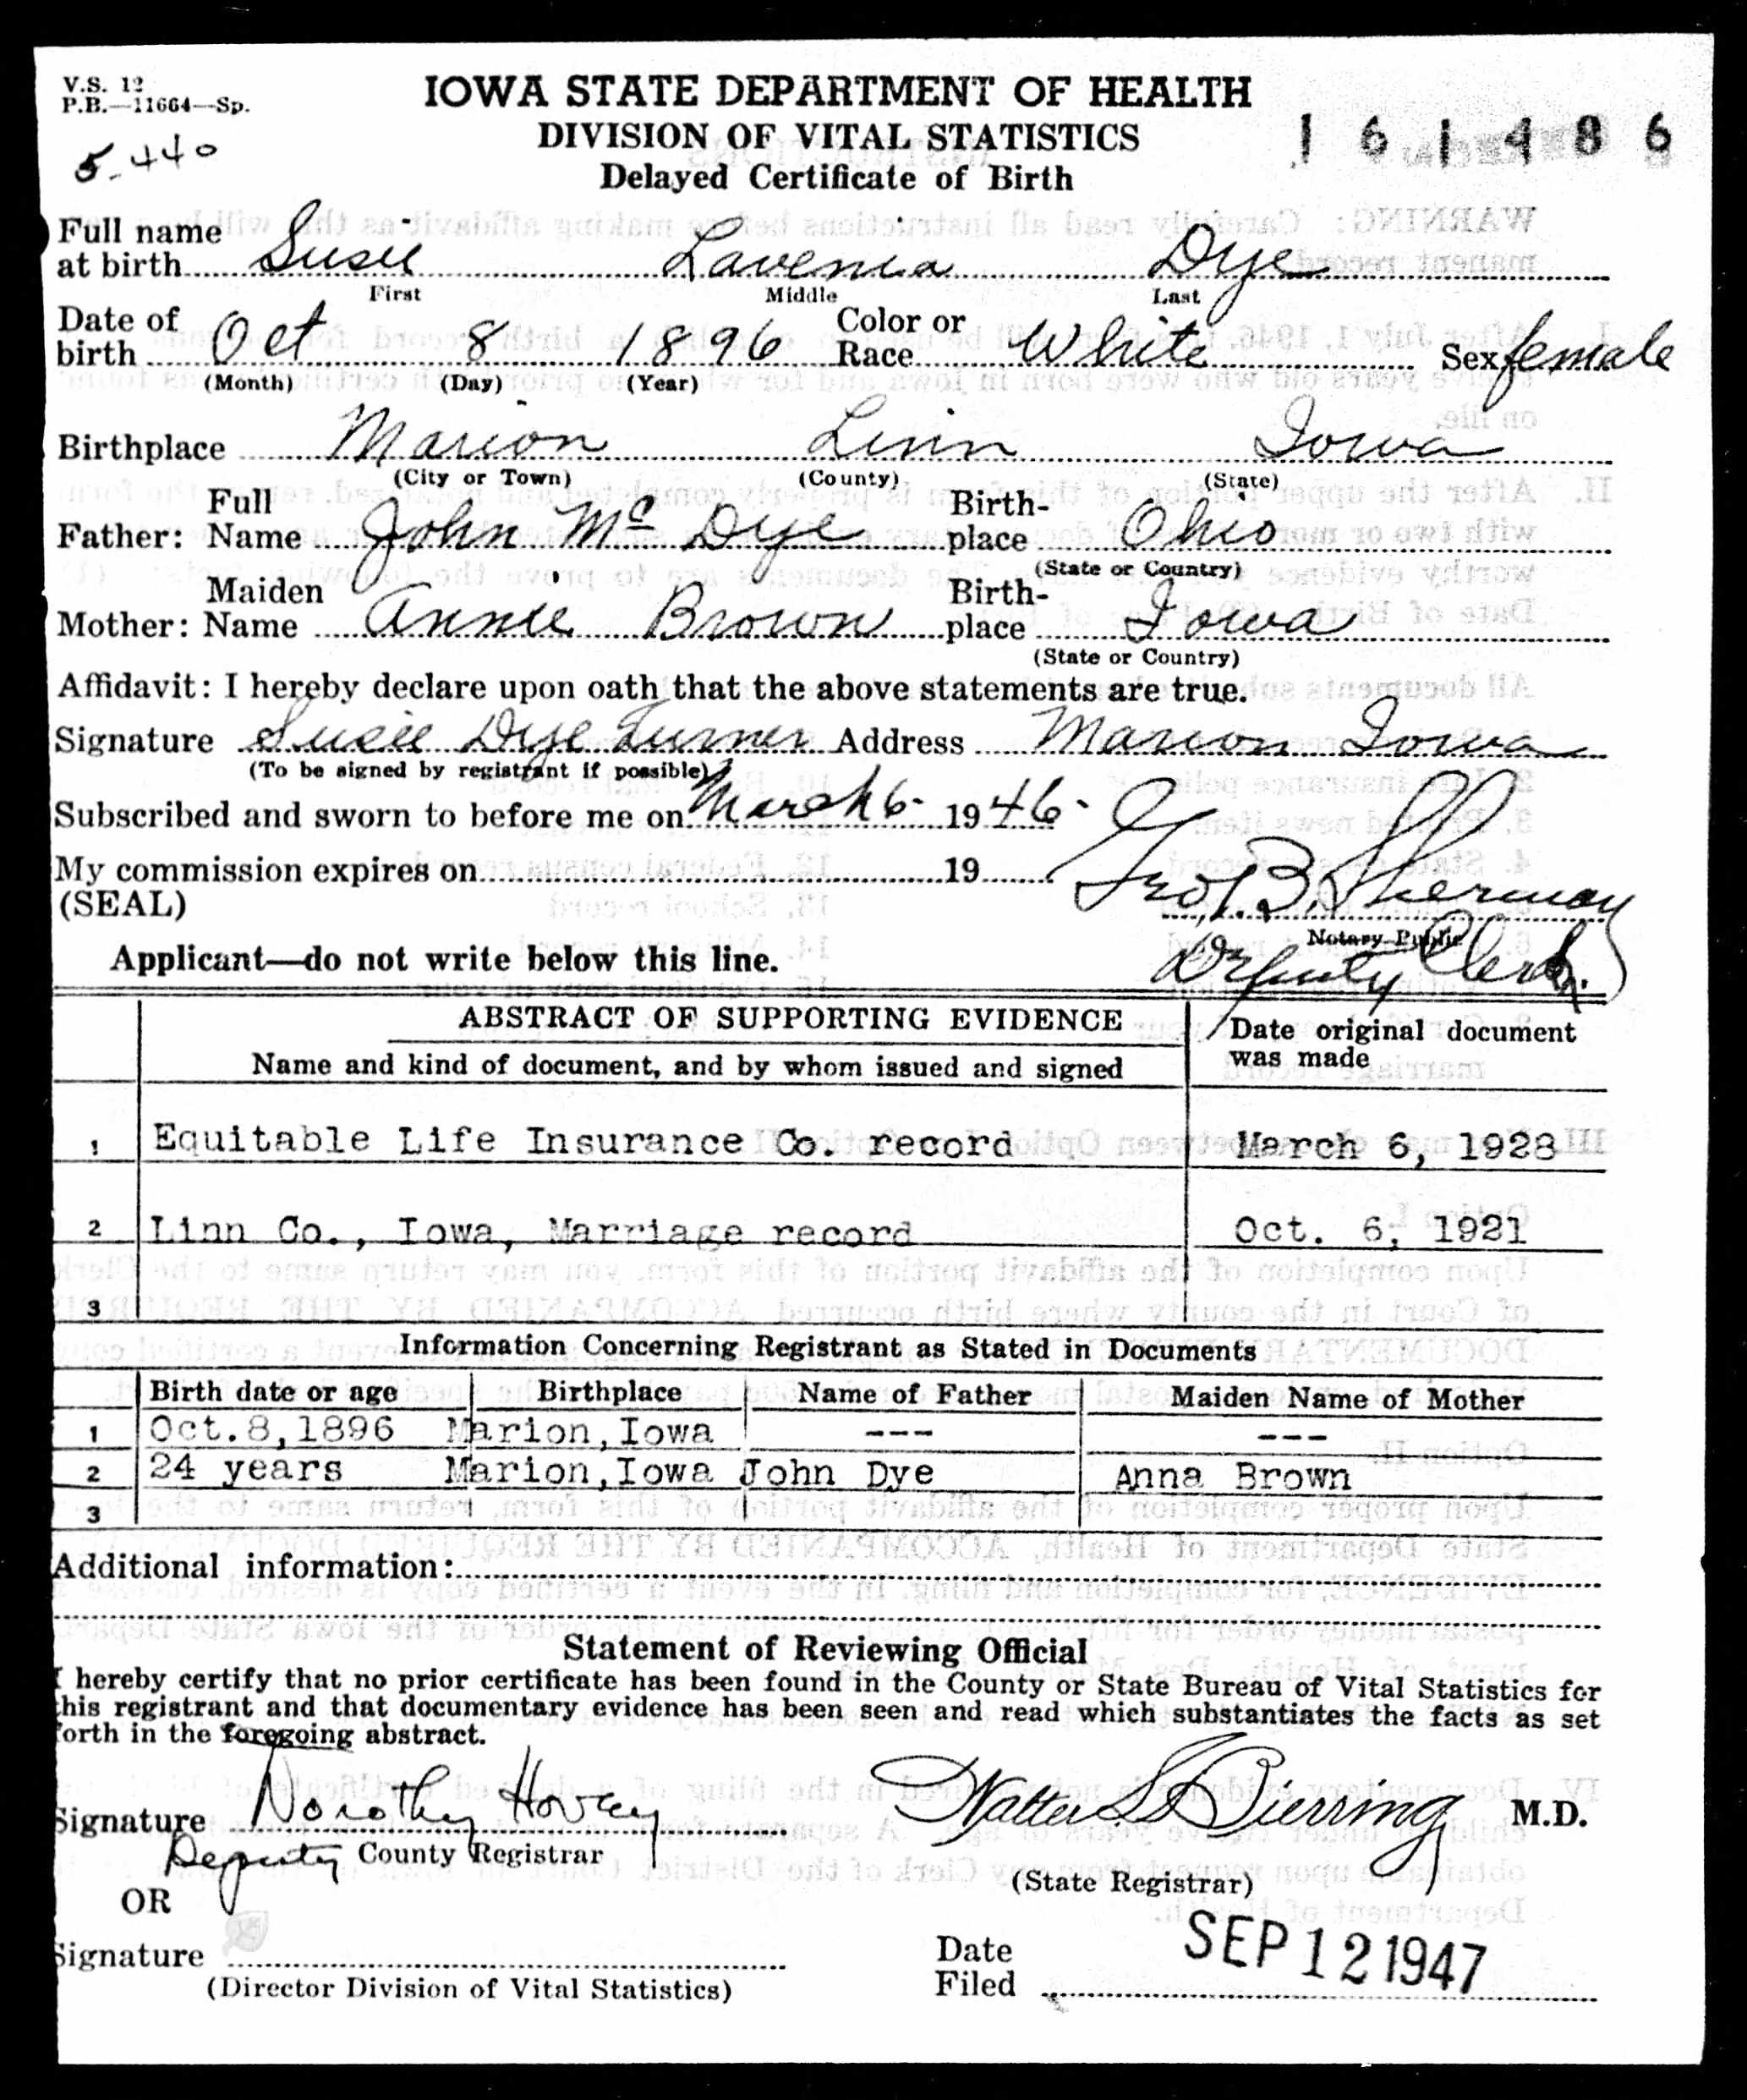 V.S. 12
P.B.—11664—Sp.
5-440
IOWA STATE DEPARTMENT OF HEALTH
DIVISION OF VITAL STATISTICS
Delayed Certificate of Birth
161486
Full name at birth Susie Lavenia Dye
First Middle Last
Date of birth Oct 8 1896 Color or Race White Sex female
(Month) (Day) (Year)
Birthplace Marion Linn Iowa
(City or Town) (County) (State)
Father: Full Name John Mc Dye Birth-place Ohio
(State or Country)
Mother: Maiden Name Annie Brown Birth-place Iowa
(State or Country)
Affidavit: I hereby declare upon oath that the above statements are true.
Signature Susie Dye Turner Address Marion Iowa
(To be signed by registrant if possible)
Subscribed and sworn to before me on March 6- 1946-
My commission expires on 19
(SEAL)
B. Sherman
Notary Public
Deputy Clerk
Applicant—do not write below this line.
ABSTRACT OF SUPPORTING EVIDENCE
Name and kind of document, and by whom issued and signed
Date original document was made
1 Equitable Life Insurance Co. record March 6, 1928
2 Linn Co., Iowa, Marriage record Oct. 6, 1921
3
Information Concerning Registrant as Stated in Documents
Birth date or age Birthplace Name of Father Maiden Name of Mother
1 Oct.8,1896 Marion,Iowa --- ---
2 24 years Marion,Iowa John Dye Anna Brown
3
Additional information:
Statement of Reviewing Official
I hereby certify that no prior certificate has been found in the County or State Bureau of Vital Statistics for
this registrant and that documentary evidence has been seen and read which substantiates the facts as set
forth in the foregoing abstract.
Signature Dorothy Hovey
Deputy County Registrar
Walter L Bierring M.D.
(State Registrar)
OR
Signature
(Director Division of Vital Statistics)
Date Filed SEP 12 1947